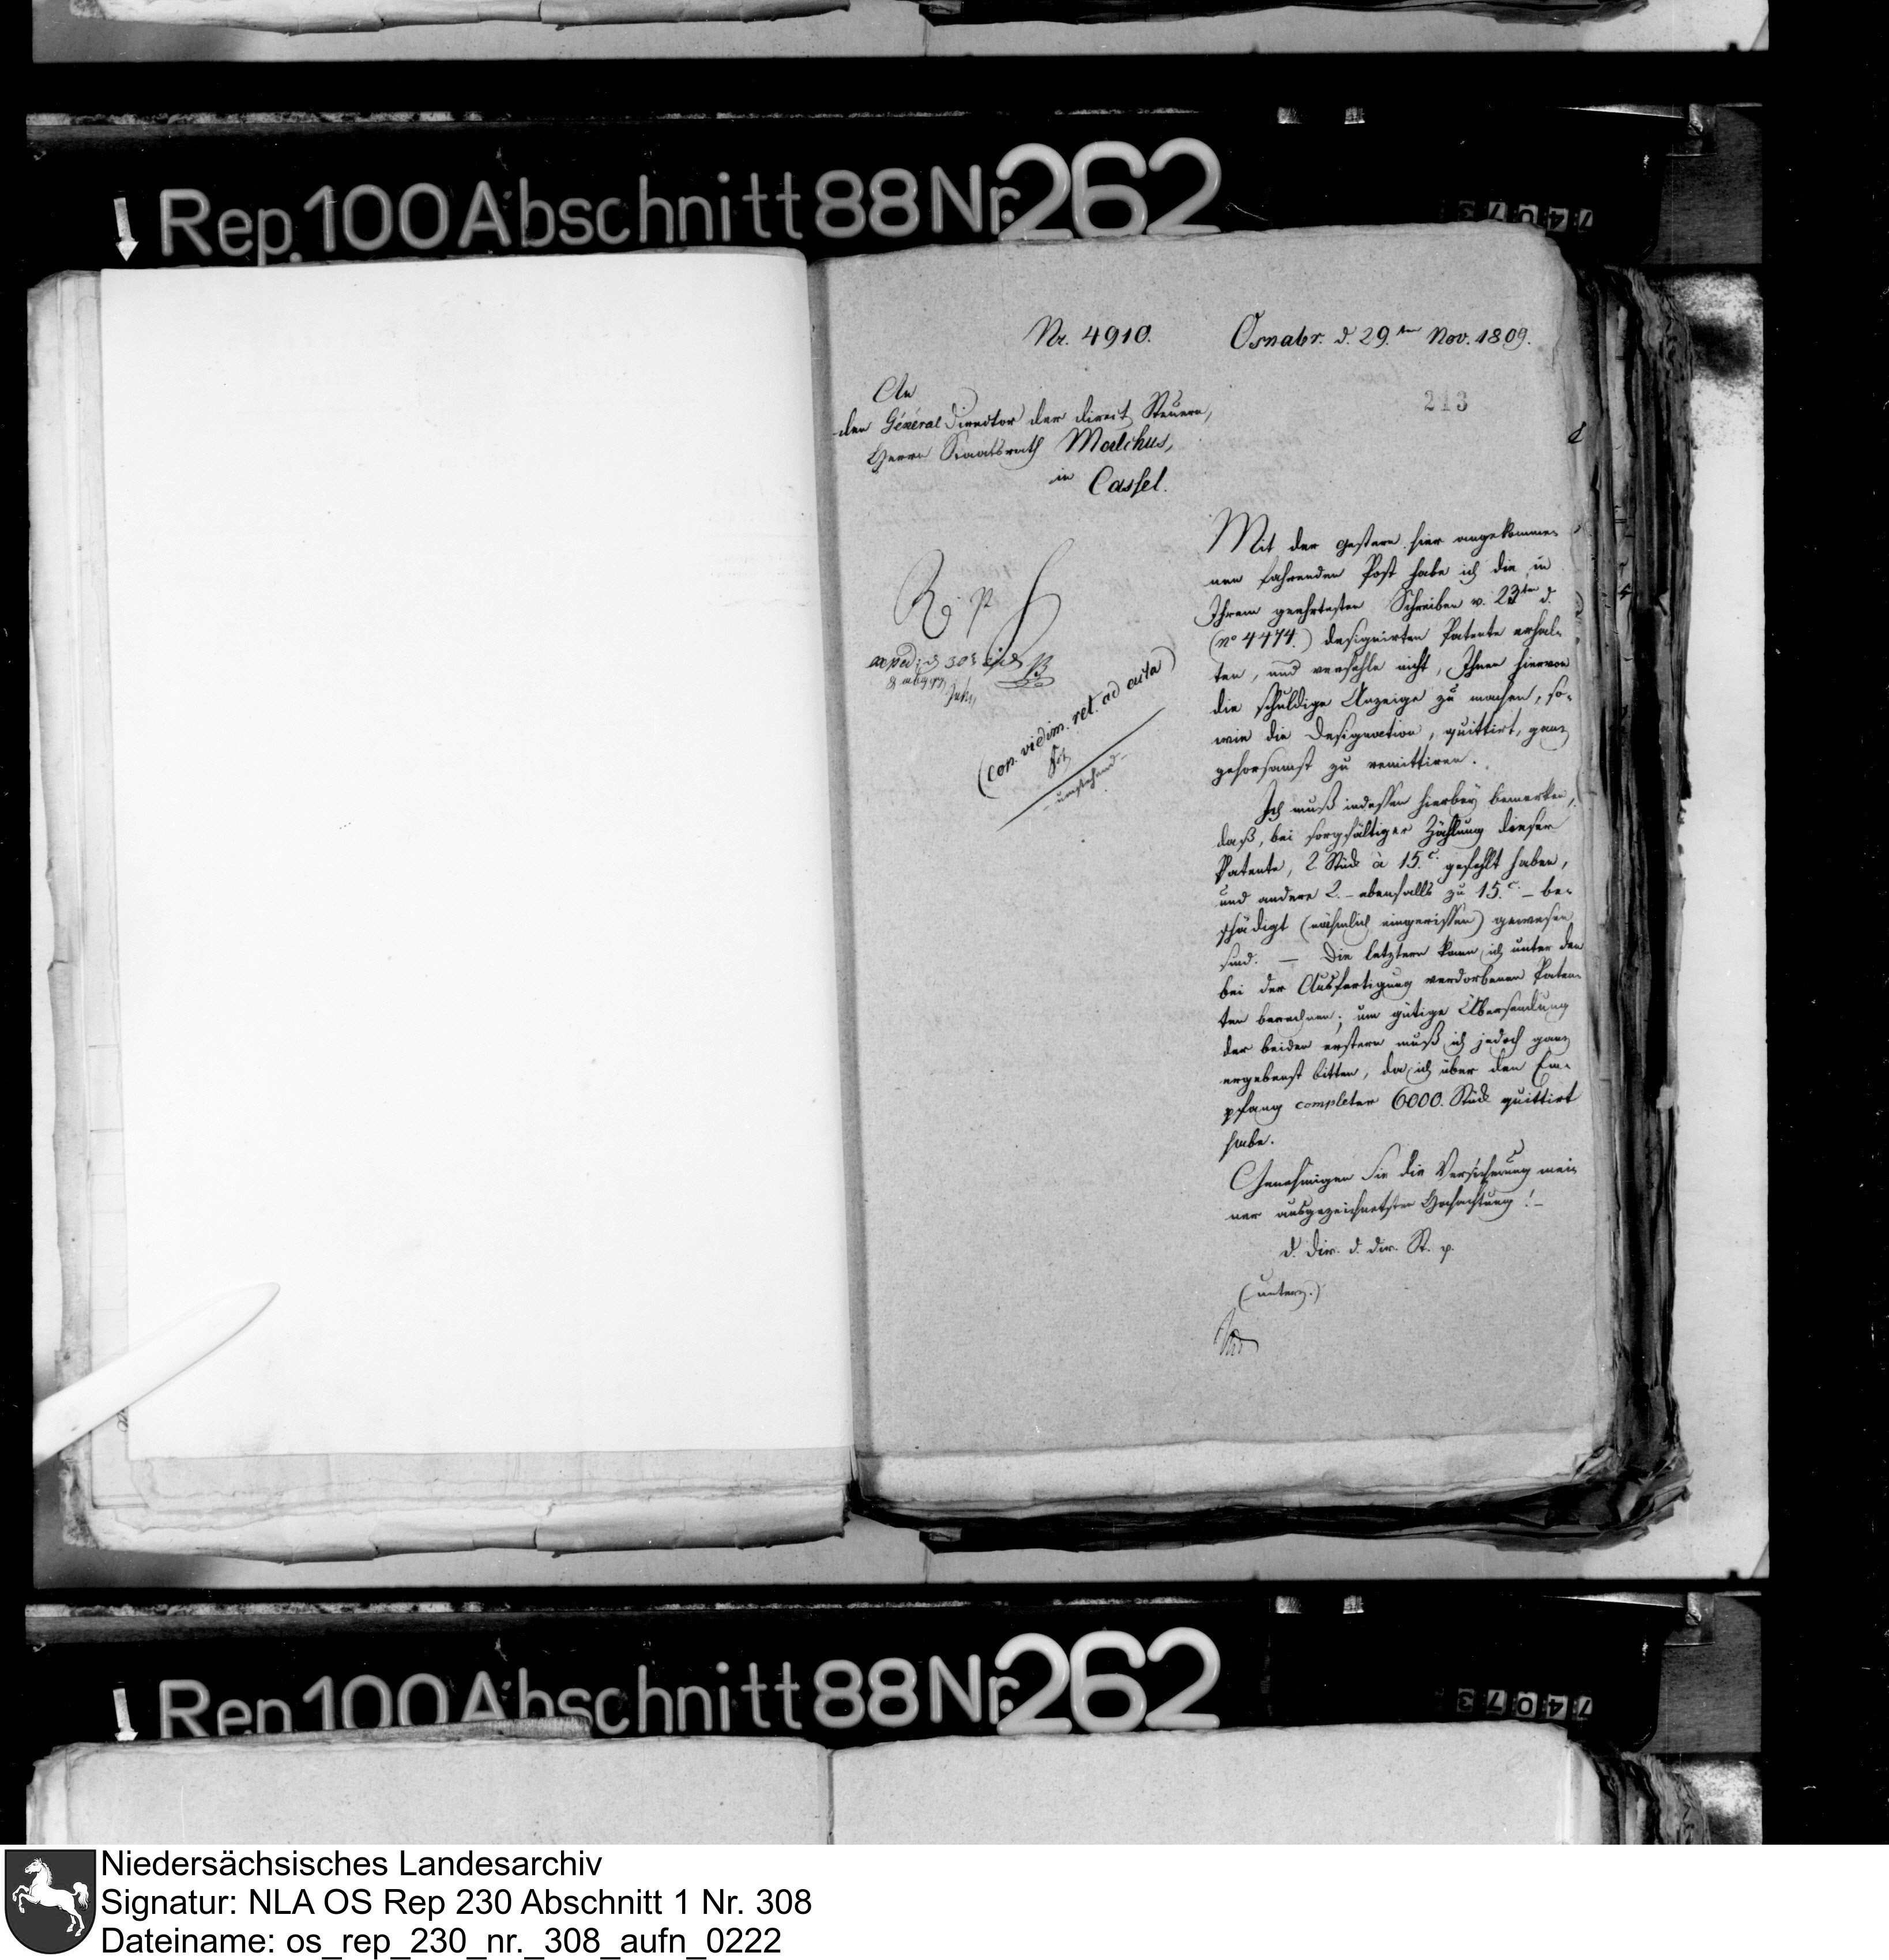 Rep. 100 Abschnitt 88 Nr. 262
74073
Nr. 4910. Osnabr. d. 29.ten Nov. 1809.
213
An
den Général Director der direct. Steuern,
Herrn Staatsrath Malchus,
in Cassel.
Mit der gestern hier angekomme-
nen fahrenden Post habe ich die in
Ihrem geehrtesten Schreiben v. 23ten d.
(no 4474.) designirten Patente erhal-
ten, und verfehle nicht, Ihnen hiervon
die schuldige Anzeige zu machen, so-
wie die Designation, quittirt, ganz
gehorsamst zu remittiren.
Ich muß indessen hierbey bemerken,
daß, bei sorgfältiger Zählung dieser
Patente, 2 Stück à 15.c. gefehlt haben,
und andere 2. – ebenfalls zu 15.c. – be-
schädigt (nähmlich eingerissen) gewesen
sind. — Die letztern kann ich unter den
bei der Ausfertigung verdorbenen Paten-
ten berechnen; um gütige Übersendung
der beiden erstern muß ich jedoch ganz
ergebenst bitten, da ich über den Em-
pfang completer 6000. Stück quittirt
habe.
Genehmigen Sie die Versicherung mei-
ner ausgezeichnetsten Hochachtung! –
d. Dir. d. dir. St. p.
(unterz.)
(Cop. vidim. ret. ad acta)
umstehend
Rep. 100 Abschnitt 88 Nr. 262
74073
Niedersächsisches Landesarchiv
Signatur: NLA OS Rep 230 Abschnitt 1 Nr. 308
Dateiname: os_rep_230_nr._308_aufn_0222